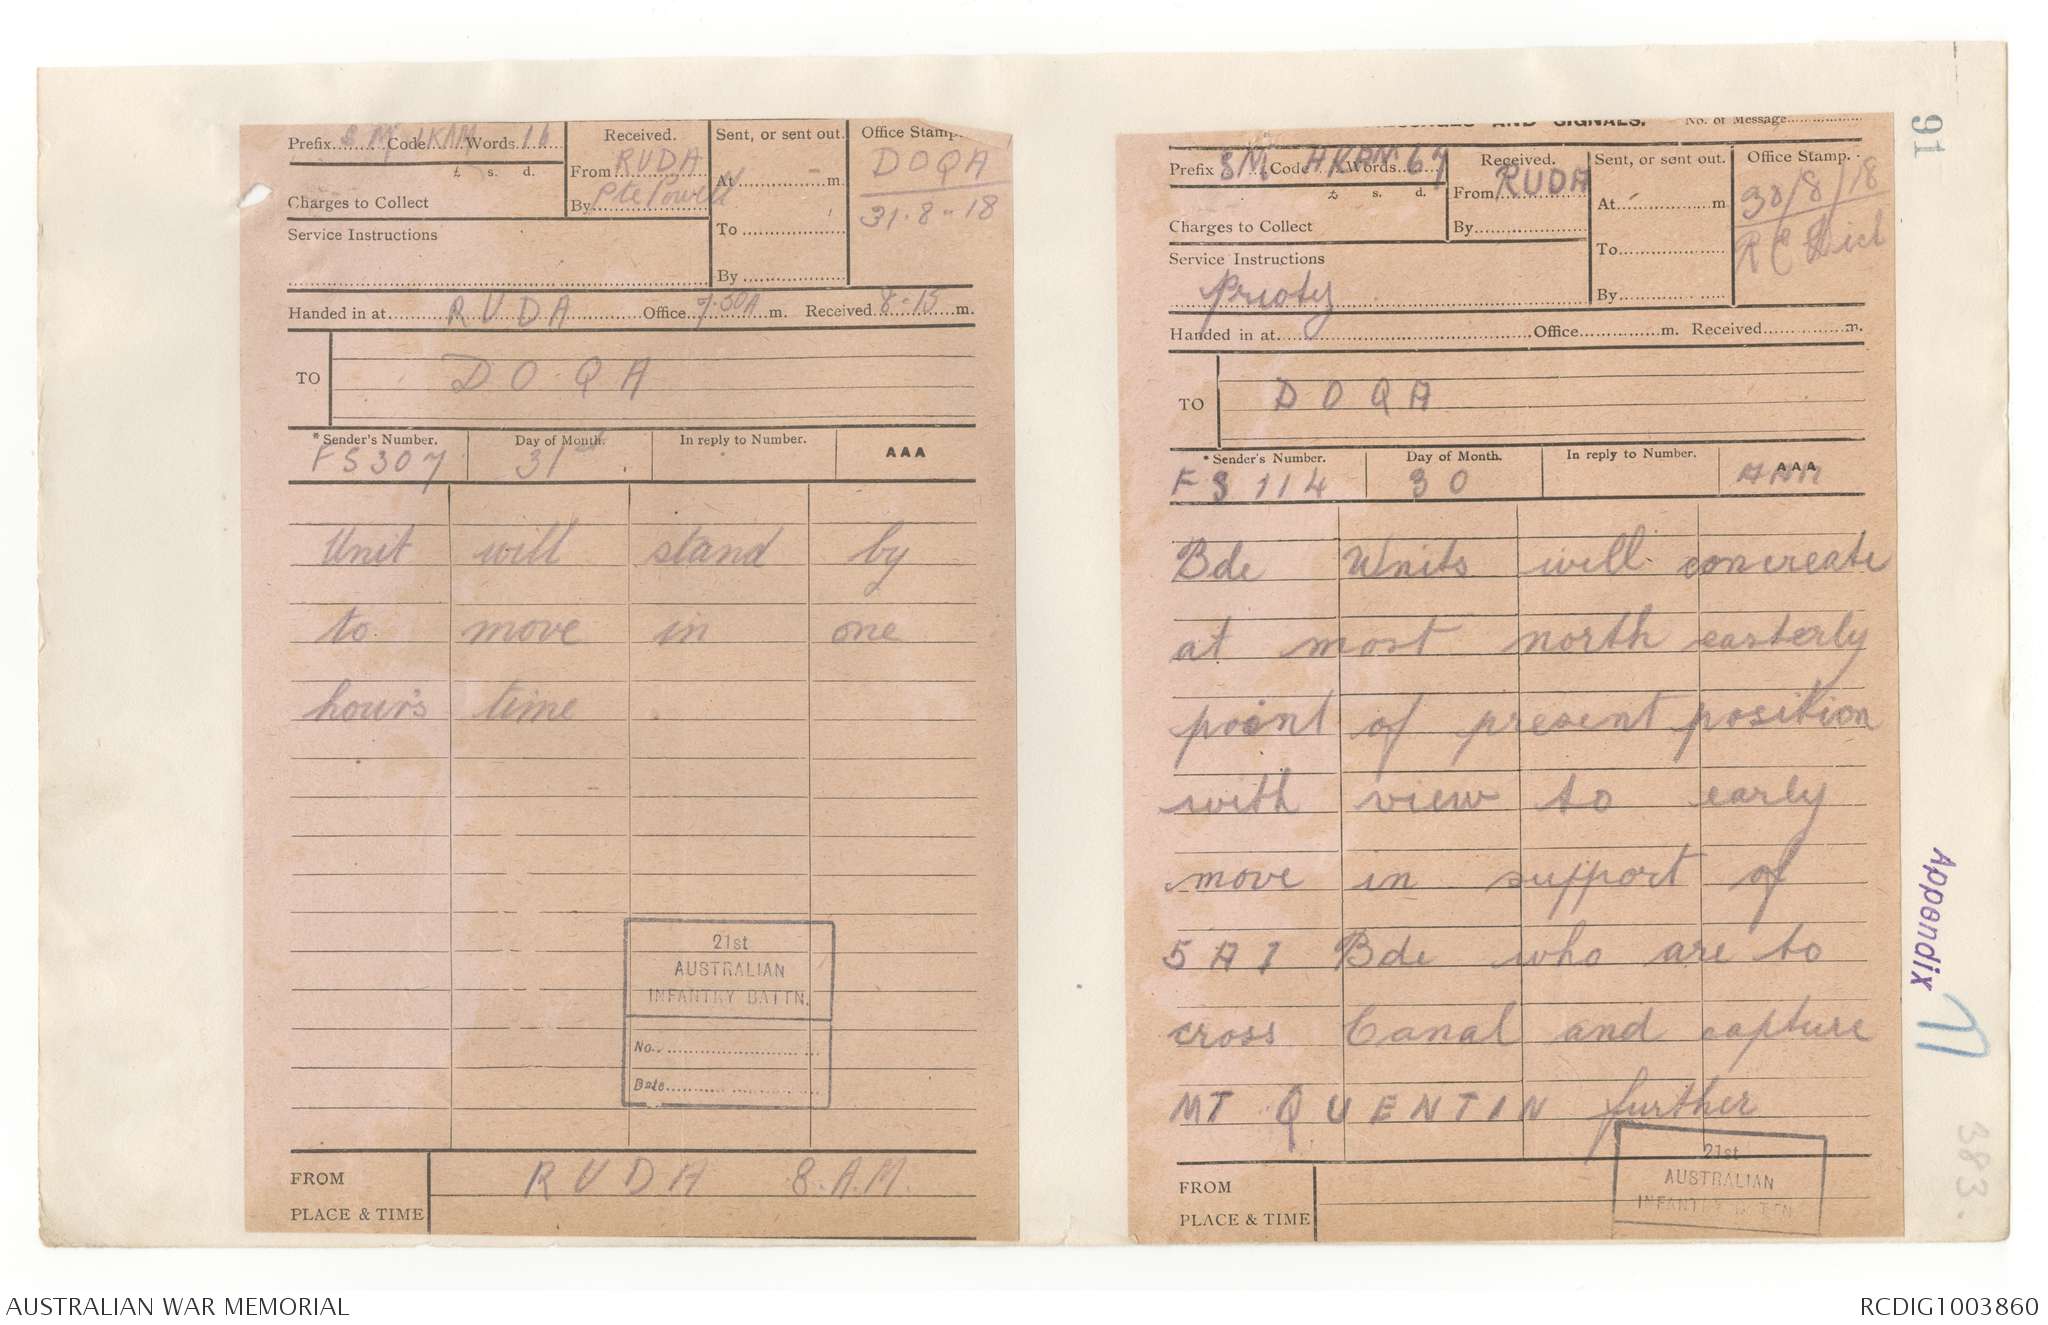 Prefix SM Code 1KAM Words 16
£ s. d.
Charges to Collect
Service Instructions
Received.
From RUDA
By Pte Powell
Sent, or sent out.
At m.
To
By
Office Stamp.
DOQA
31.8-18
Handed in at RUDA Office 7.30A m. Received 8-15 m.
TO DOQA
*Sender's Number. Day of Month. In reply to Number. AAA
FS307 31st
Unit will stand by
to move in one
hour's time
21st
AUSTRALIAN
INFANTRY BATTN.
No.
Date
FROM RUDA 8.A.M.
PLACE & TIME
MESSAGES AND SIGNALS. No. of Message
Prefix SM Code Words 67
£ s. d.
Charges to Collect
Service Instructions
Prioty
Received.
From RUDA
By
Sent, or sent out.
At m
To
By
Office Stamp.
30/8/18
Handed in at Office m. Received m.
TO DOQA
*Sender's Number. Day of Month. In reply to Number. AAA
FS 114 30 AAA
Bde Units will concreate
at most north easterly
point of present position
with view to early
move in support of
5 A I Bde who are to
cross Canal and capture
MT QUENTIN further
21st
AUSTRALIAN
INFANTRY BATTN
FROM
PLACE & TIME
91
Appendix
383.
AUSTRALIAN WAR MEMORIAL
RCDIG1003860